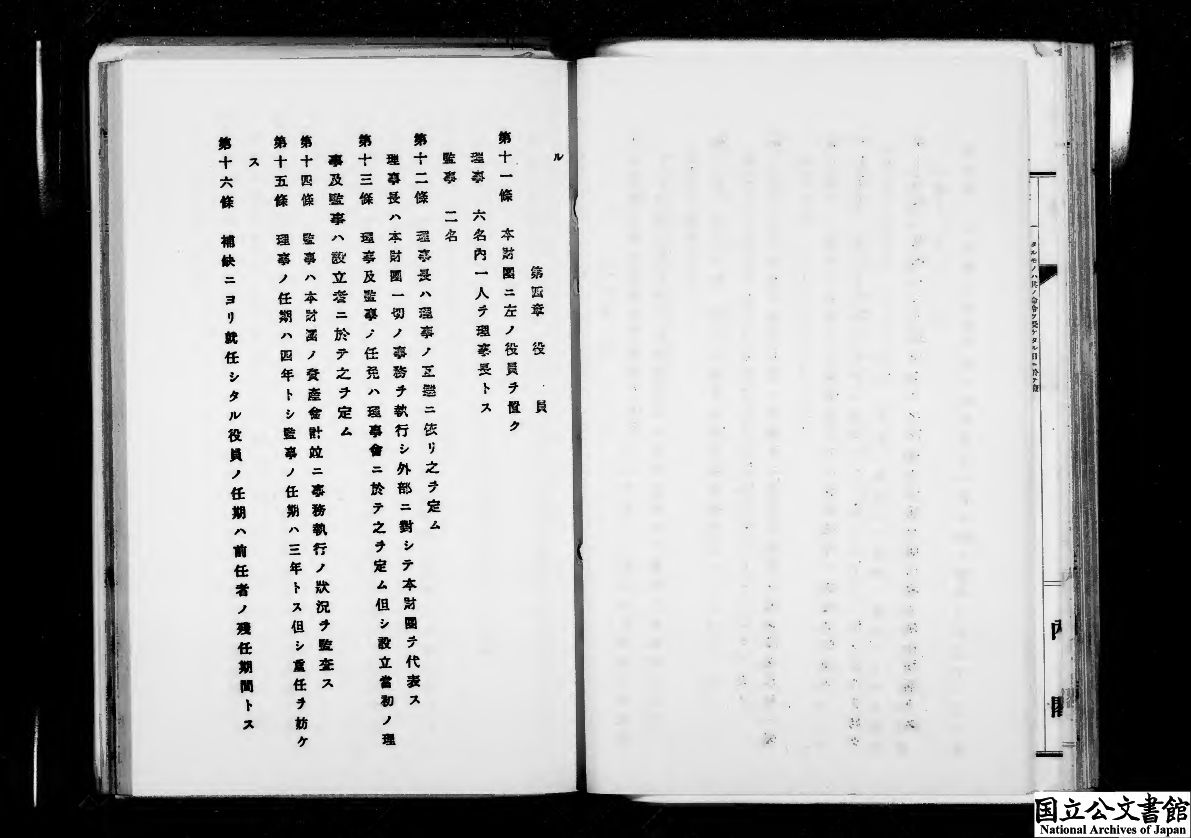 ル
第四章 役員
第十一條 本財團ニ左ノ役員ヲ置ク
理事 六名內一人ヲ理事長トス
監事 二名
第十二條 理事長ハ理事ノ互選ニ依リ之ヲ定ム
理事長ハ本財團一切ノ事務ヲ執行シ外部ニ對シテ本財團ヲ代表ス
第十三條 理事及監事ノ任免ハ理事會ニ於テ之ヲ定ム但シ設立當初ノ理
事及監事ハ設立者ニ於テ之ヲ定ム
第十四條 監事ハ本財團ノ資產會計竝ニ事務執行ノ狀況ヲ監査ス
第十五條 理事ノ任期ハ四年トシ監事ノ任期ハ三年トス但シ重任ヲ妨ケ
ス
第十六條 補缺ニヨリ就任シタル役員ノ任期ハ前任者ノ殘任期間トス
內閣
国立公文書館
National Archives of Japan